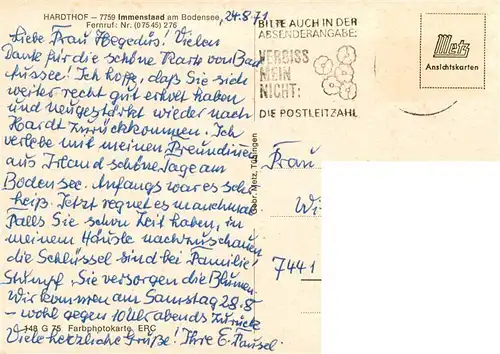 HARDTHOF – 7759 Immenstaad am Bodensee,
Fernruf: Nr. (07545) 276
24.8.71
Liebe Frau Hegedüs! Vielen
Dank für die schöne Karte von Bad
Aussee! Ich hoffe, daß Sie sich
weiter recht gut erholt haben
und neugestärkt wieder nach
Hardt zurückkommen. Ich
verlebe mit meinen Freundinnen
aus Irland schöne Tage am
Bodensee. Anfangs war es sehr
heiß. Jetzt regnet es manchmal
Falls Sie schon Zeit haben, in
meinem Häusle nachzuschauen
die Schlüssel sind bei Familie
Stumpf, Sie versorgen die Blumen.
Wir kommen am Samstag 28.8.
– wohl gegen 10 Uhr abends zurück
Viele herzliche Grüße! Ihre E.
148 G 75 Farbphotokarte, ERC
Gebr. Metz, Tübingen
BITTE AUCH IN DER
ABSENDERANGABE:
VERGISS
MEIN
NICHT:
DIE POSTLEITZAHL
Metz
Ansichtskarten
Frau
7441